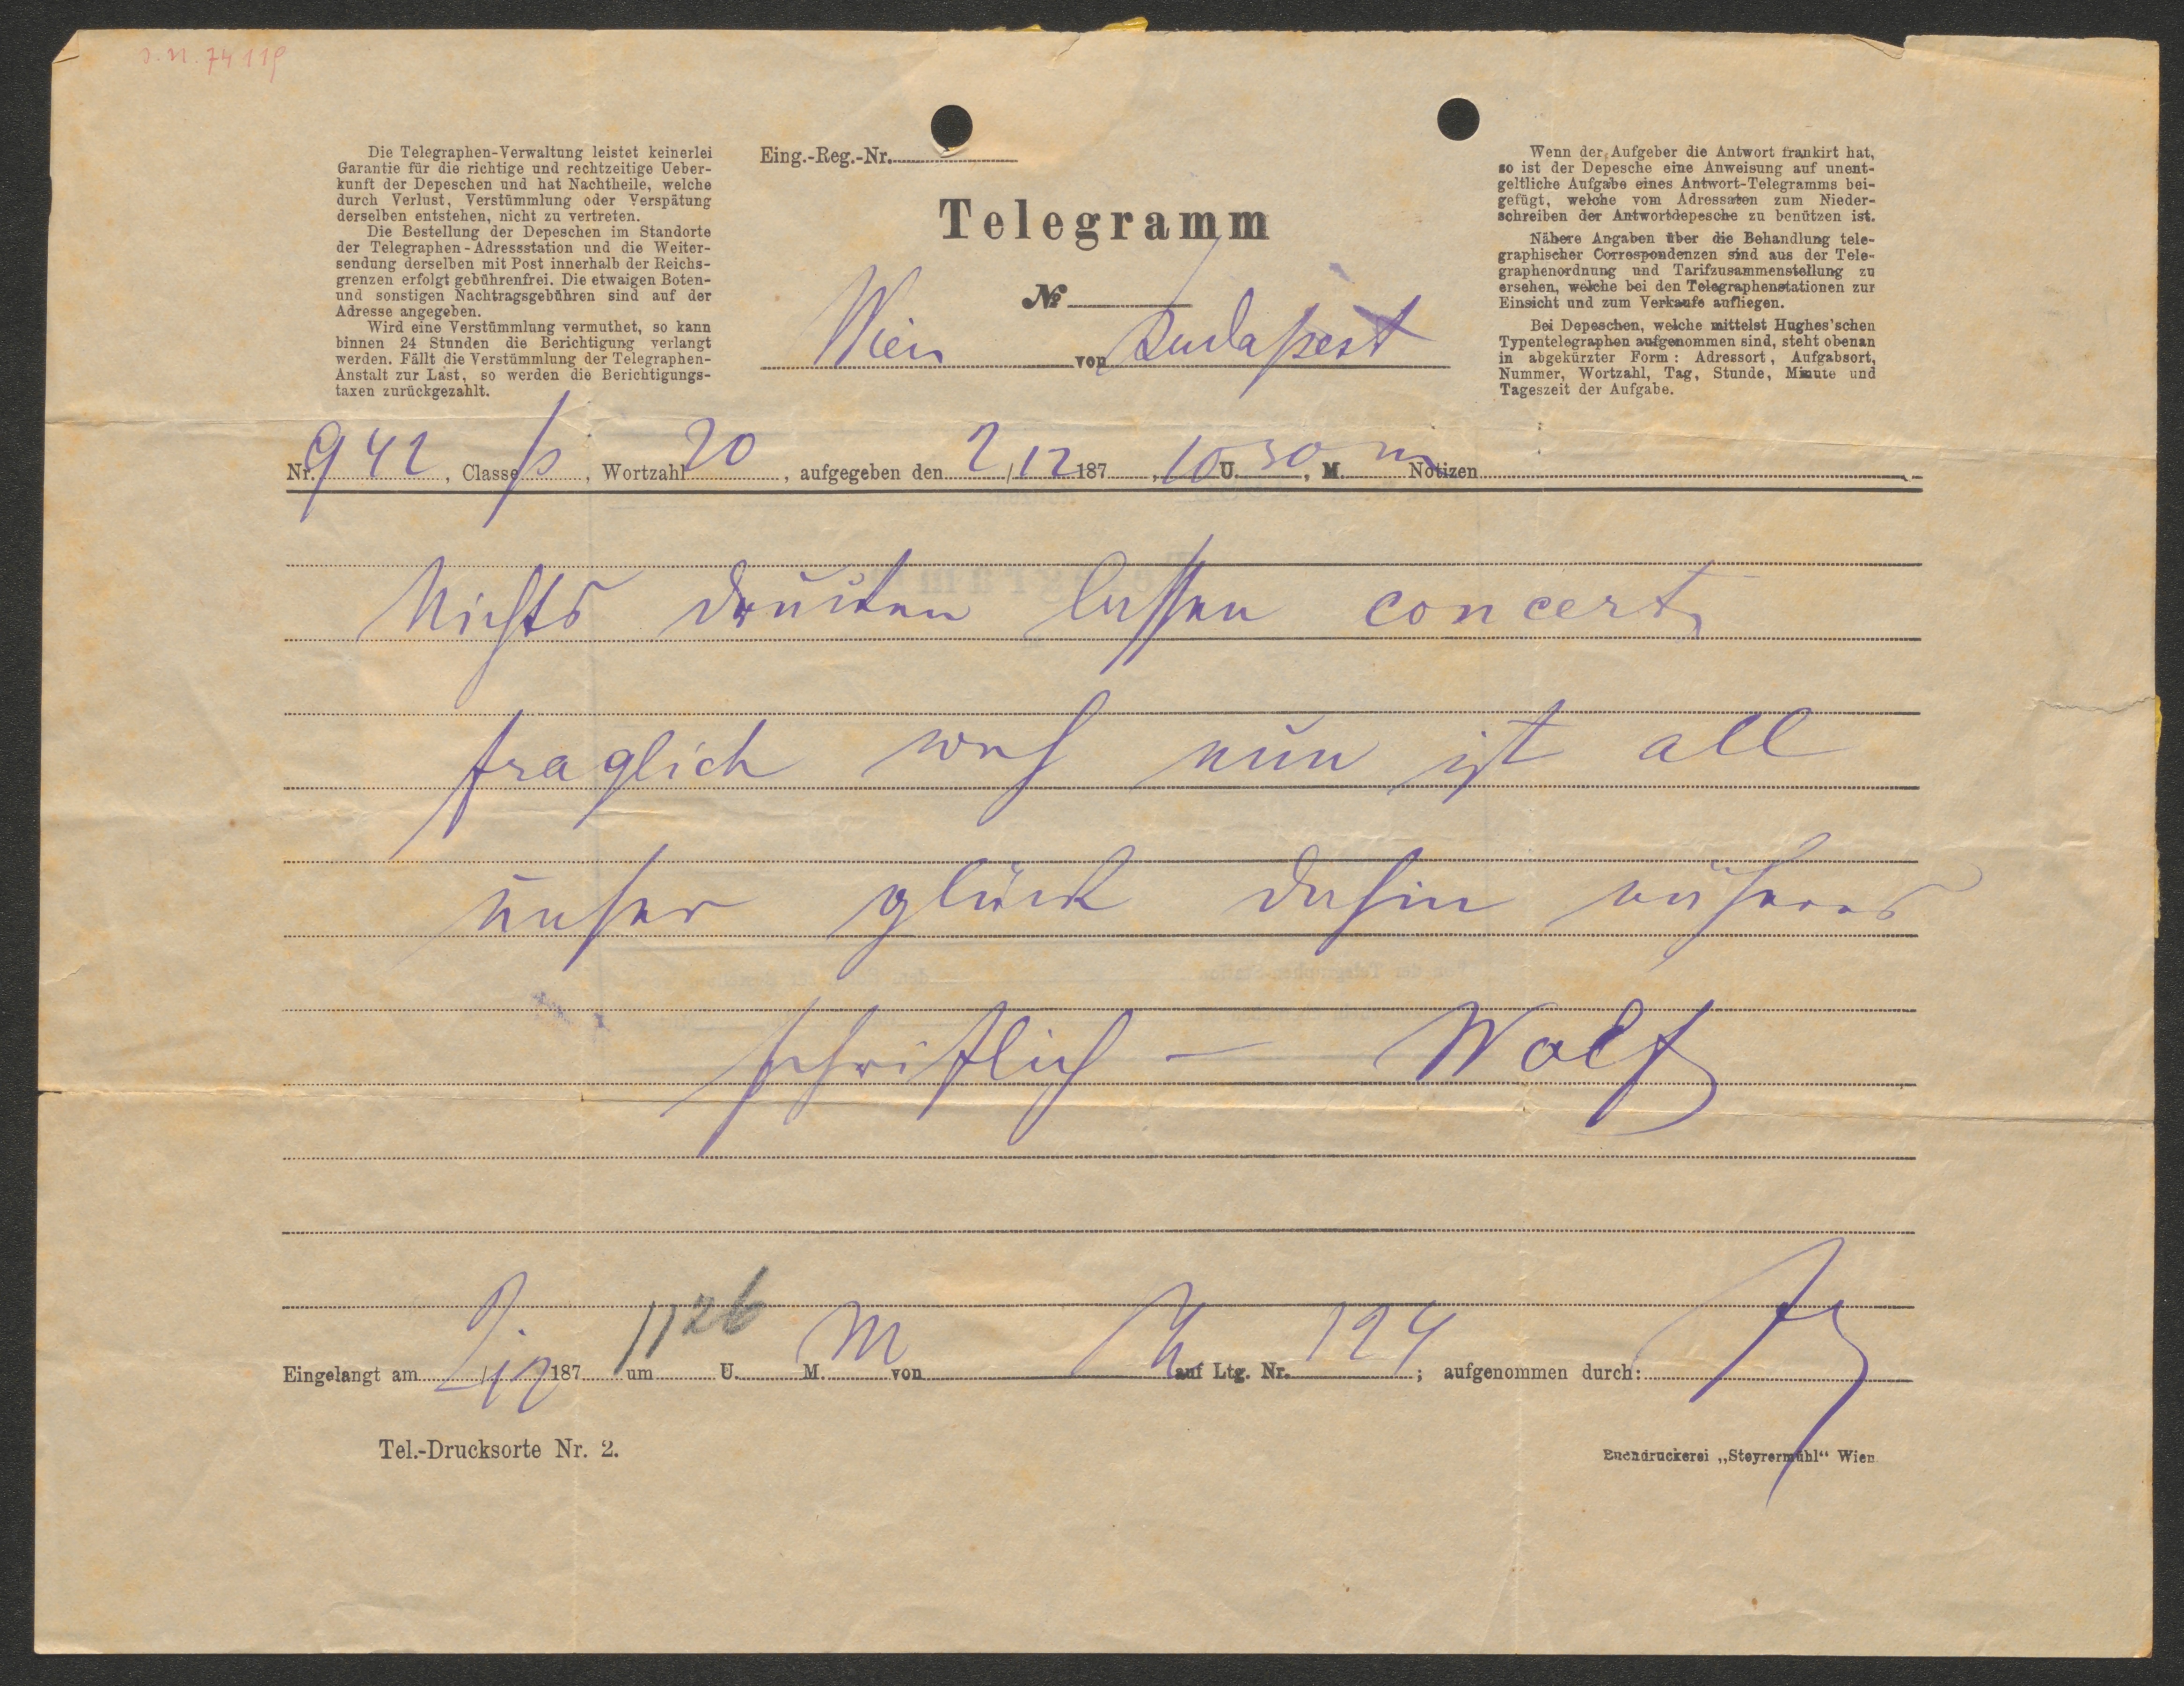 J.N. 74119
Die Telegraphen-Verwaltung leistet keinerlei
Garantie für die richtige und rechtzeitige Ueber-
kunft der Depeschen und hat Nachtheile, welche
durch Verlust, Verstümmlung oder Verspätung
derselben entstehen, nicht zu vertreten.
Die Bestellung der Depeschen im Standorte
der Telegraphen-Adressstation und die Weiter-
sendung derselben mit Post innerhalb der Reichs-
grenzen erfolgt gebührenfrei. Die etwaigen Boten-
und sonstigen Nachtragsgebühren sind auf der
Adresse angegeben.
Wird eine Verstümmlung vermuthet, so kann
binnen 24 Stunden die Berichtigung verlangt
werden. Fällt die Verstümmlung der Telegraphen-
Anstalt zur Last, so werden die Berichtigungs-
taxen zurückgezahlt.
Eing.-Reg.-Nr.
Telegramm
№
Wien von Budapest
Wenn der Aufgeber die Antwort frankirt hat,
so ist der Depesche eine Anweisung auf unent-
geltliche Aufgabe eines Antwort-Telegramms bei-
gefügt, welche vom Adressaten zum Nieder-
schreiben der Antwortdepesche zu benützen ist.
Nähere Angaben über die Behandlung tele-
graphischer Correspondenzen sind aus der Tele-
graphenordnung und Tarifzusammenstellung zu
ersehen, welche bei den Telegraphenstationen zur
Einsicht und zum Verkaufe aufliegen.
Bei Depeschen, welche mittelst Hughes'schen
Typentelegraphen aufgenommen sind, steht obenan
in abgekürzter Form: Adressort, Aufgabsort,
Nummer, Wortzahl, Tag, Stunde, Minute und
Tageszeit der Aufgabe.
Nr. 942, Classe p, Wortzahl 20, aufgegeben den 2/12 187 , 10 U. 30, M. m Notizen
Nichts drucken lassen concert
fraglich weh nun ist all
unser glück dahin näheres
schriftlich – Wolf
Eingelangt am 2/12 187 um 11 U. 26 M. M von auf Ltg. Nr. 124; aufgenommen durch:
Tel.-Drucksorte Nr. 2.
Buchdruckerei „Steyrermühl“ Wien